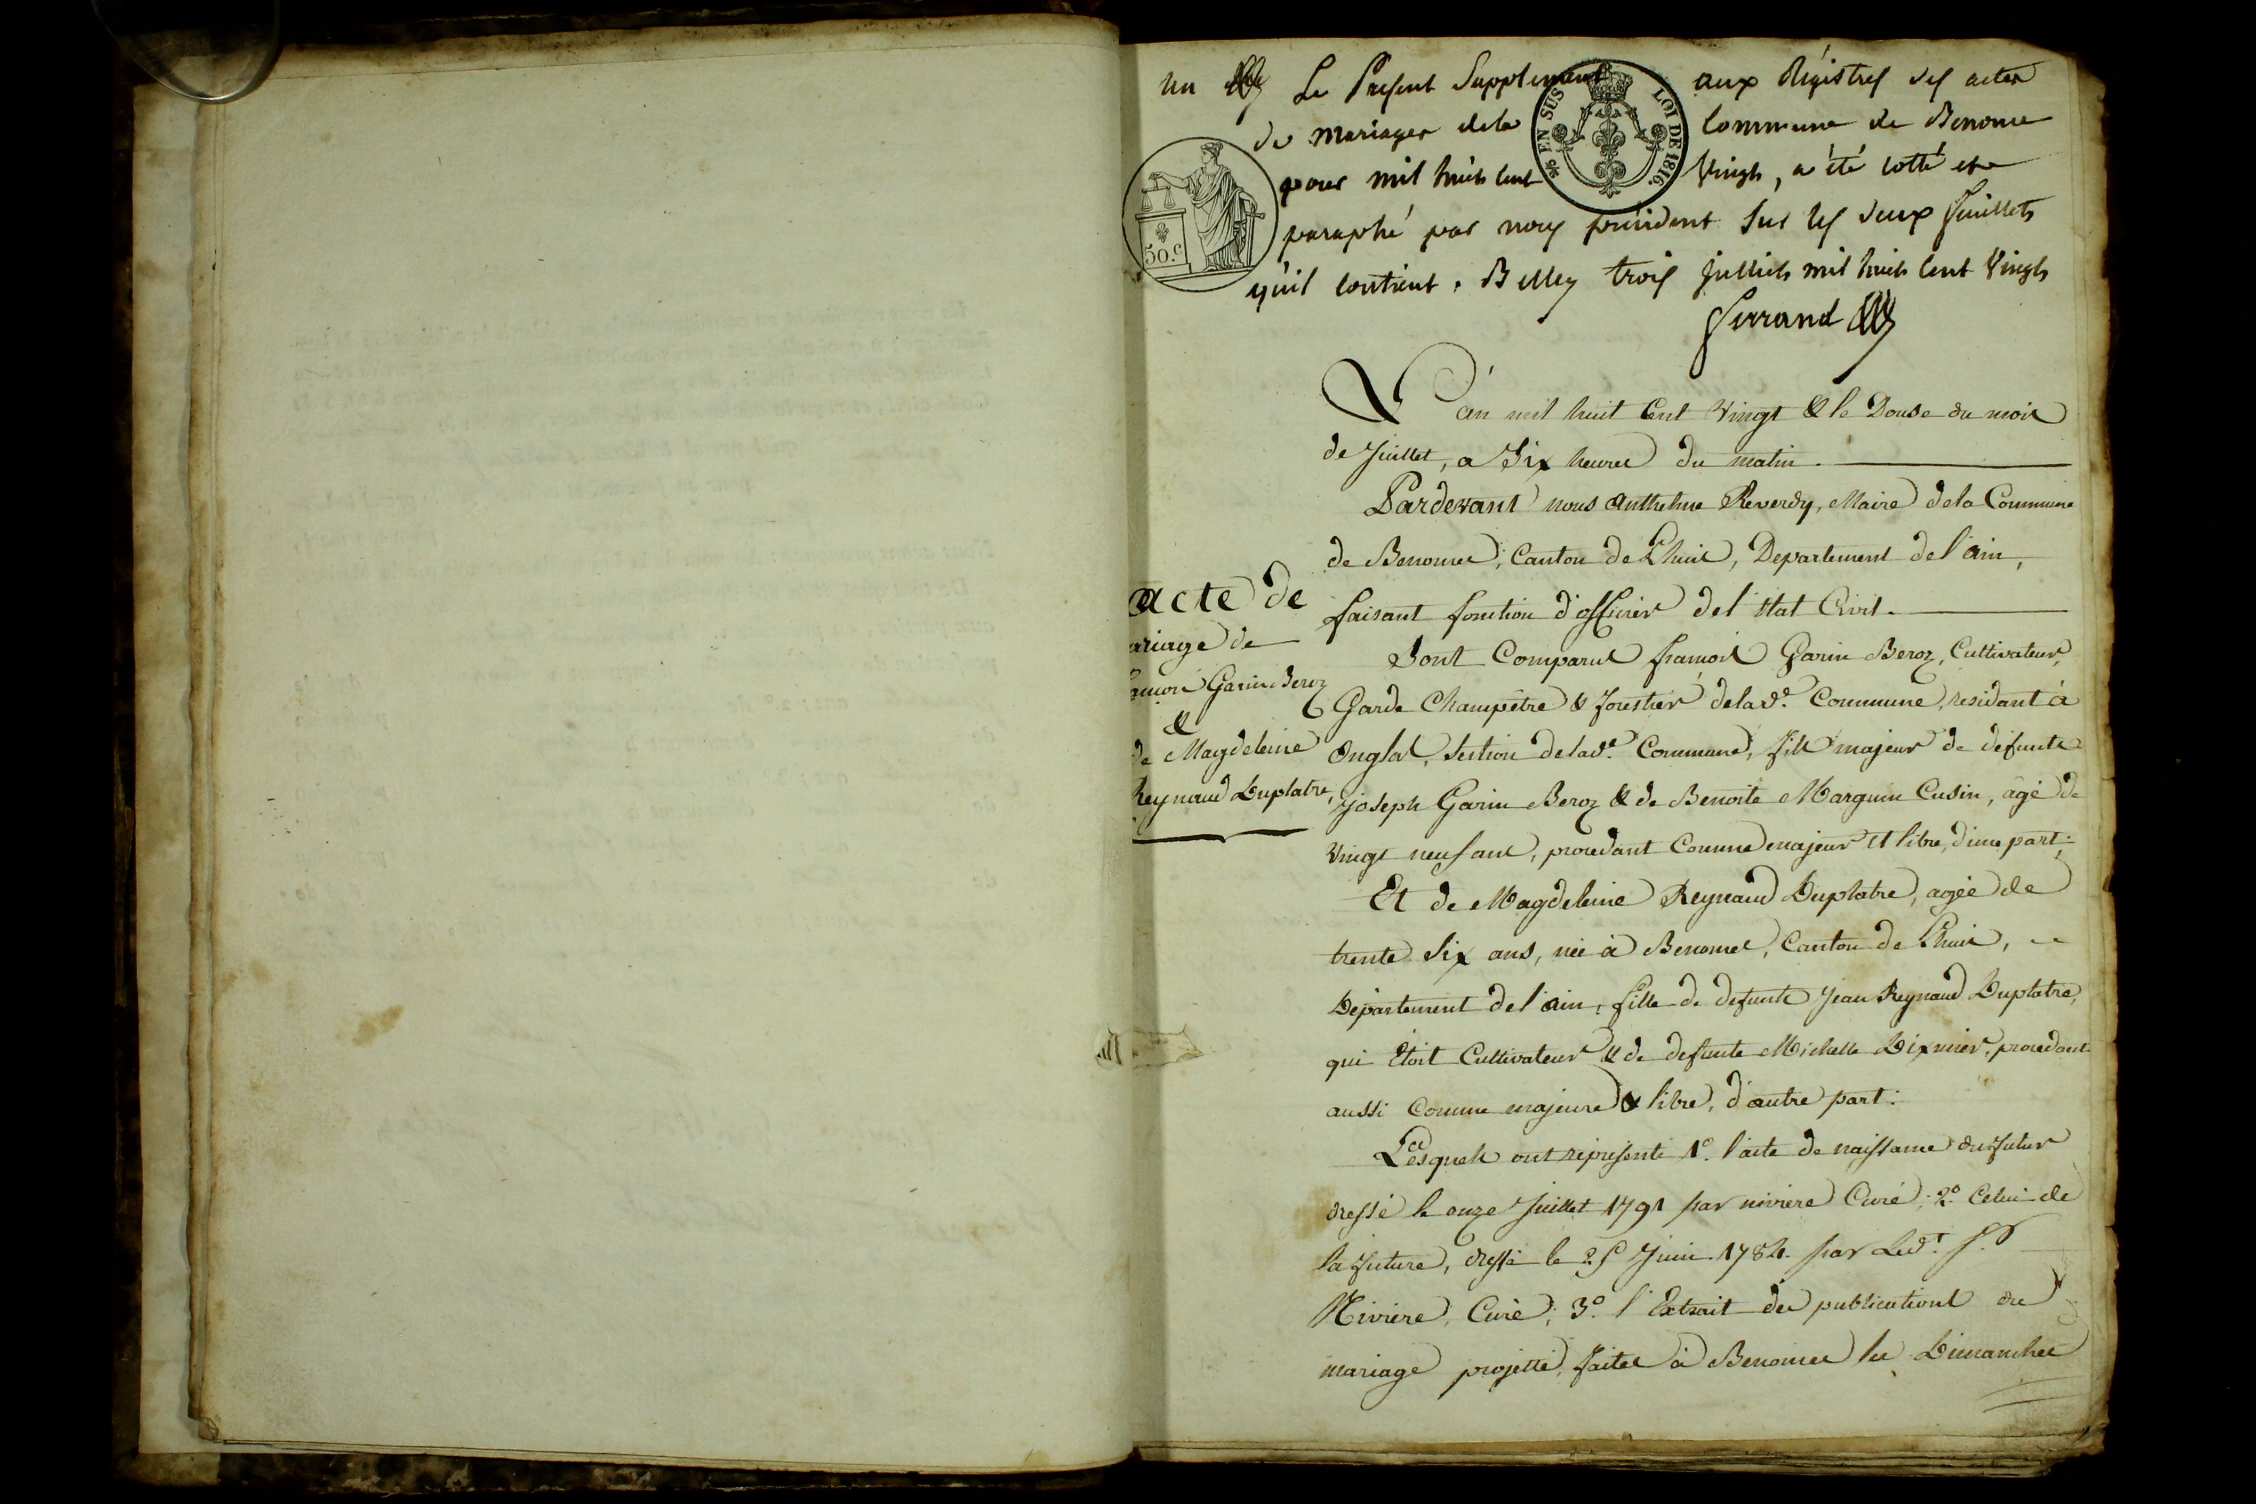 un Le Present Supplement aux Régistres des actes
de mariages dela Commune de Benonce
pour mil huit cent Vingt, a été cotté et
paraphé par nous président sur les deux feuillets
qu'il contient. Belley trois juillet mil huit cent Vingt
Ferrand
EN SUS
LOI DE 1816.
50.c
L'an mil huit Cent Vingt & le Douse du mois
de Juillet, a Six heures du matin.
Pardevant nous Anthelme Reverdy, Maire dela Commune
de Benonces, Canton de Lhuis, Departement de l'ain,
faisant fonction d'officier de l'Etat Civil.
Sont Comparus françois Garin Beroz, Cultivateur,
Garde Champêtre & forestier delad.e Commune, residant à
Onglas, Section delad.e Commune, fils majeur de défunts
Joseph Garin Beroz & de Benoite Marguin Cusin, âgé de
Vingt neuf ans, procedant Comme majeur et libre, d'une part;
Et de Magdeleine Reynaud Duplatre, agée de
trente Six ans, née à Benonces, Canton de Lhuis,
Département de l'ain, fille de defunts Jean Reynaud Duplatre,
qui étoit Cultivateur & de defunte Michelle Dixmier, procedant
aussi Comme majeure & libre, d'autre part:
Lesquels ont représenté 1.º l'acte de naissance du futur
dressé le onze Juillet 1791 par nivière Curé; 2.º Celui de
la future, dressé le 25 Juin 1784 par Led.t S.r
Nivière, Curé; 3.º l'Extrait des publications du
mariage projetté, faites à Benonces les Dimanches
acte de
ariage de
ançois Garin Beroz
&
de Magdeleine
Reynaud Duplatre,